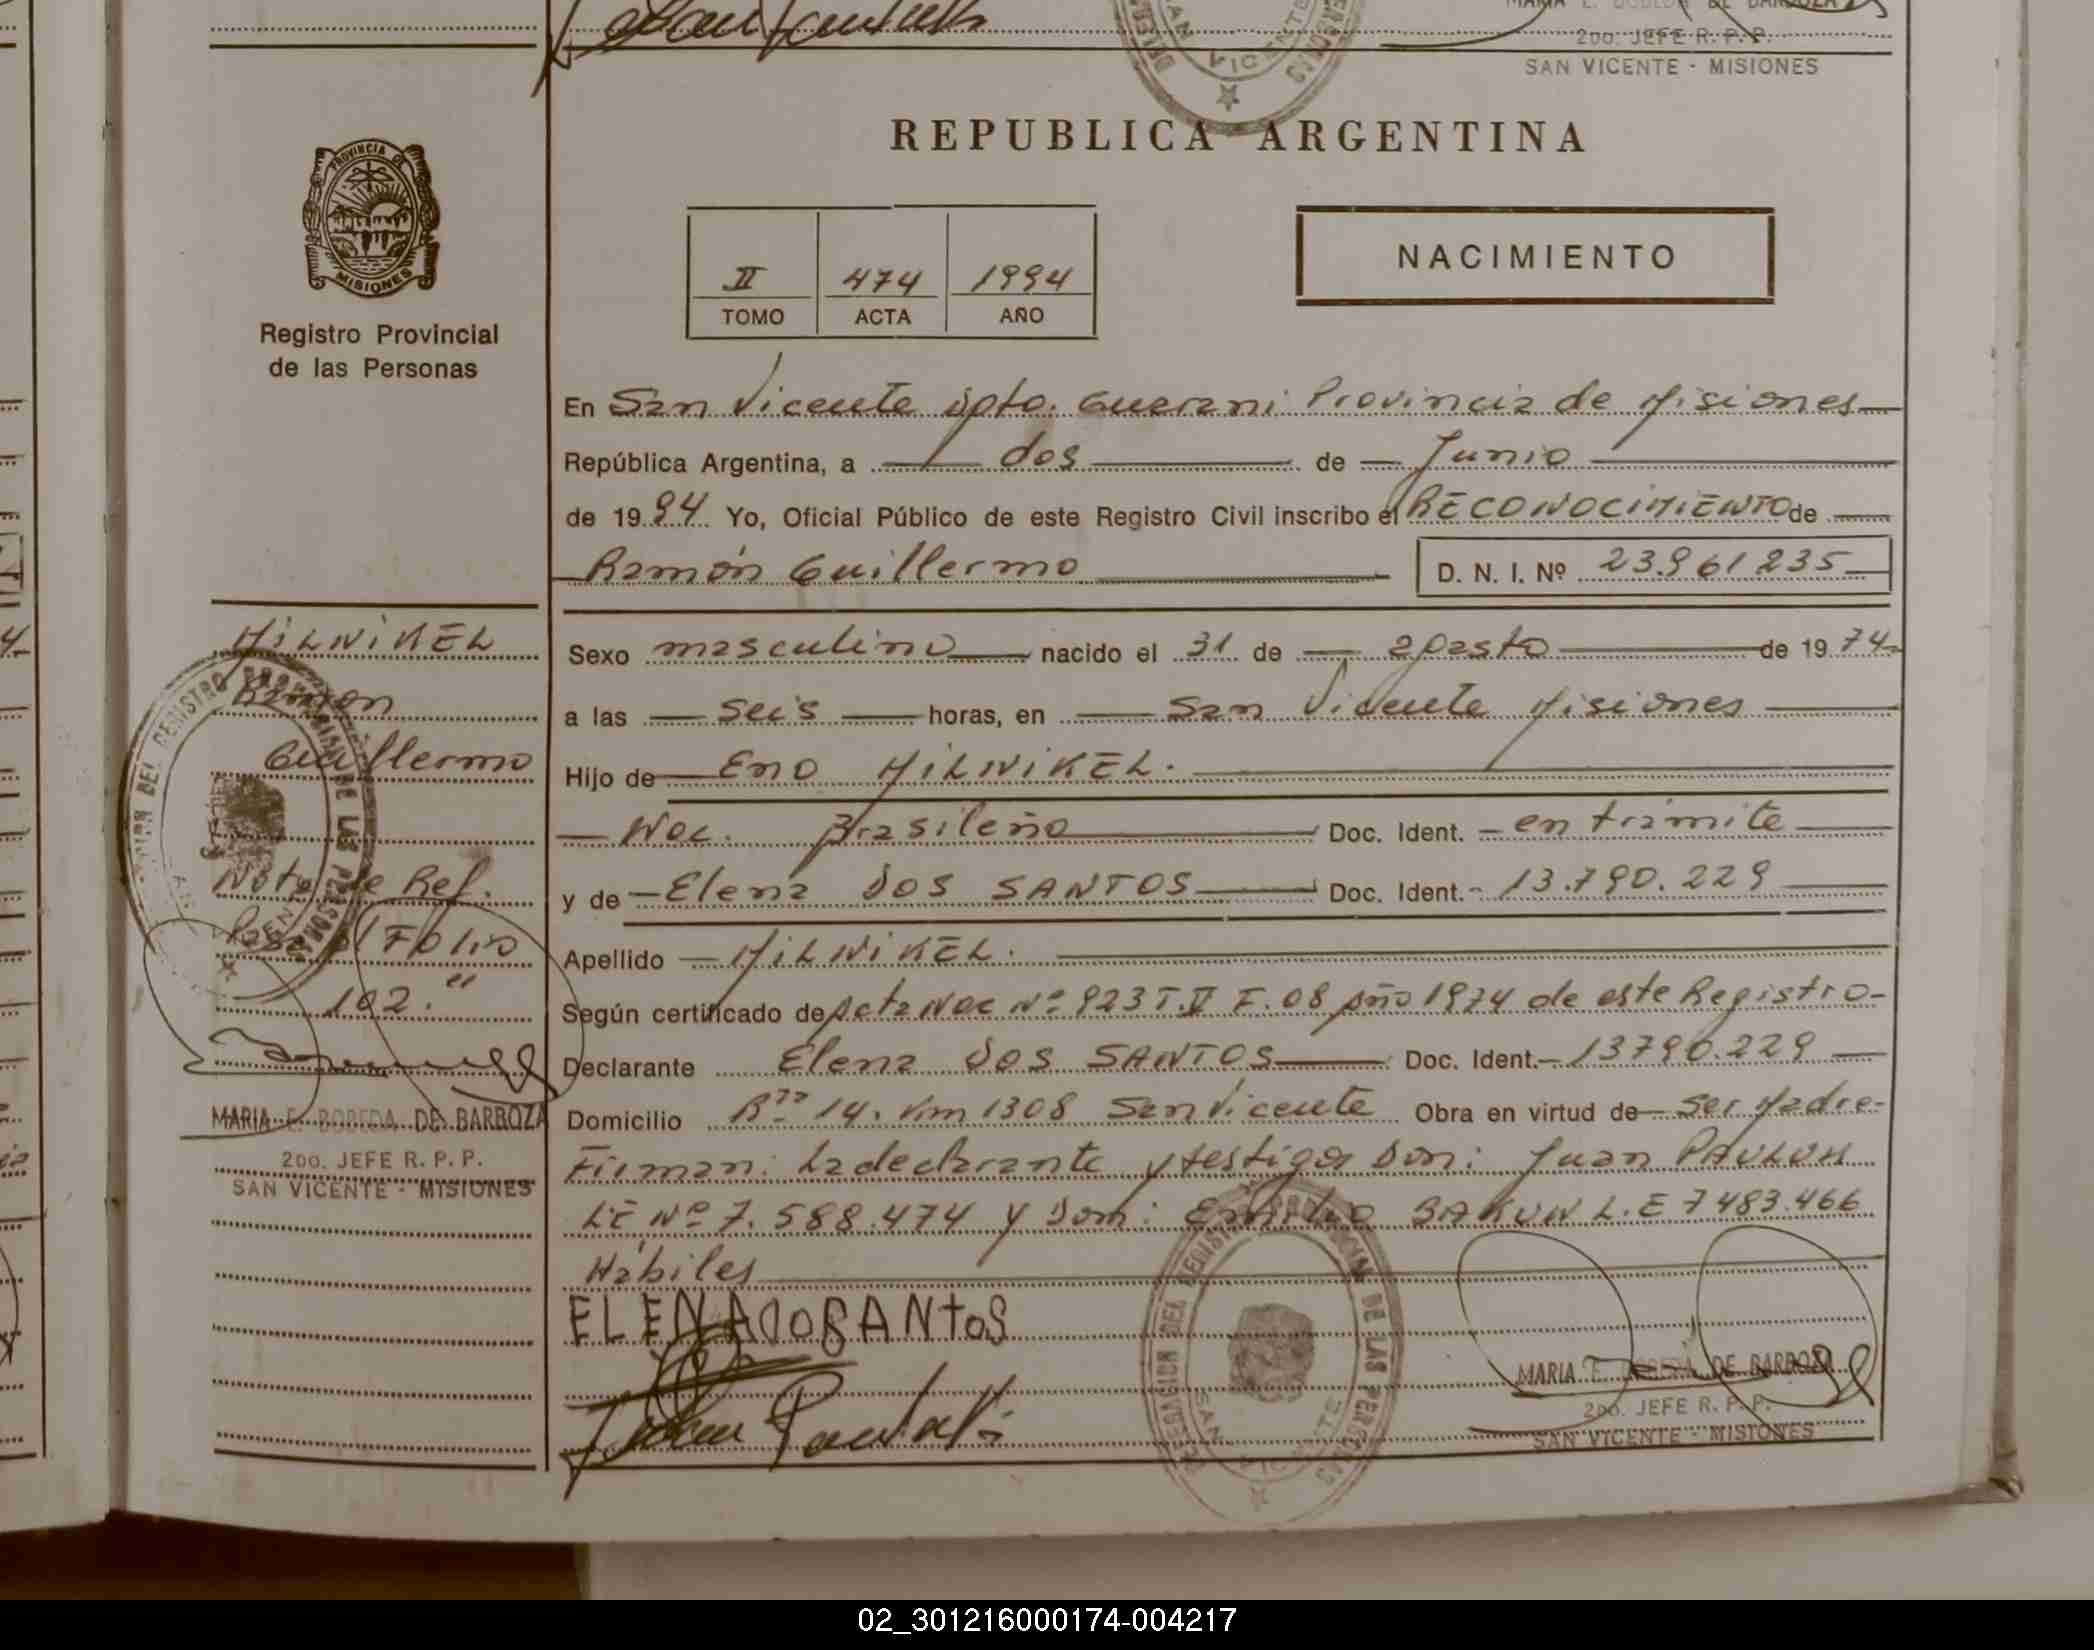 MARIA E. BOBEDA DE BARBOZA
2do. JEFE R. P. P.
SAN VICENTE - MISIONES
SAN VICENTE
PROVINCIA DE MISIONES
Registro Provincial
de las Personas
REPUBLICA ARGENTINA
II 474 1994
TOMO ACTA AÑO
NACIMIENTO
En San Vicente Dpto. Guarani Provincia de Misiones
República Argentina, a dos de Junio
de 1994 Yo, Oficial Público de este Registro Civil inscribo el RECONOCIMIENTO de
Ramón Guillermo D. N. I. Nº 23.961235
Sexo masculino nacido el 31 de agosto de 1974
a las seis horas, en San Vicente Misiones
Hijo de Eno MILNIKEL.
Nac. Brasileño Doc. Ident. en trámite
y de Elena DOS SANTOS Doc. Ident. 13.790.229
Apellido MILNIKEL.
Según certificado de Acta Nac Nº 923 T.II F. 08 Año 1974 de este Registro-
Declarante Elena DOS SANTOS Doc. Ident. 13790.229
Domicilio Rta 14. Km 1308 San Vicente Obra en virtud de ser Madre-
Firman: La declarante y testigos Don: Juan PAULUK
LE Nº 7.588.474 y Don: Emilio BAKUN L.E 7483.466
Hábiles
ELENADOSANtoS
DELEGACION DEL REGISTRO PROVINCIAL DE LAS PERSONAS
SAN VICENTE
MARIA E. BOBEDA DE BARBOZA
2do. JEFE R. P. P.
SAN VICENTE - MISIONES
MILNIKEL
Ramón
Guillermo
Nota de Ref.
Pasa al Folio
102."
MARIA E. BOBEDA DE BARBOZA
2do. JEFE R. P. P.
SAN VICENTE - MISIONES
02_301216000174-004217